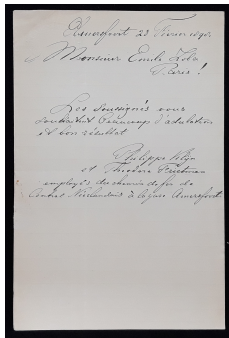 Amersfoort 23 Février 1898
Monsieur Emile Zola
Paris!
Les soussignés vous
souhaitent beaucoup d'adulation
et bon résultat
Philippe
et Theodore
employés du chemin de fer de
Central Néerlandais à Amersfoort